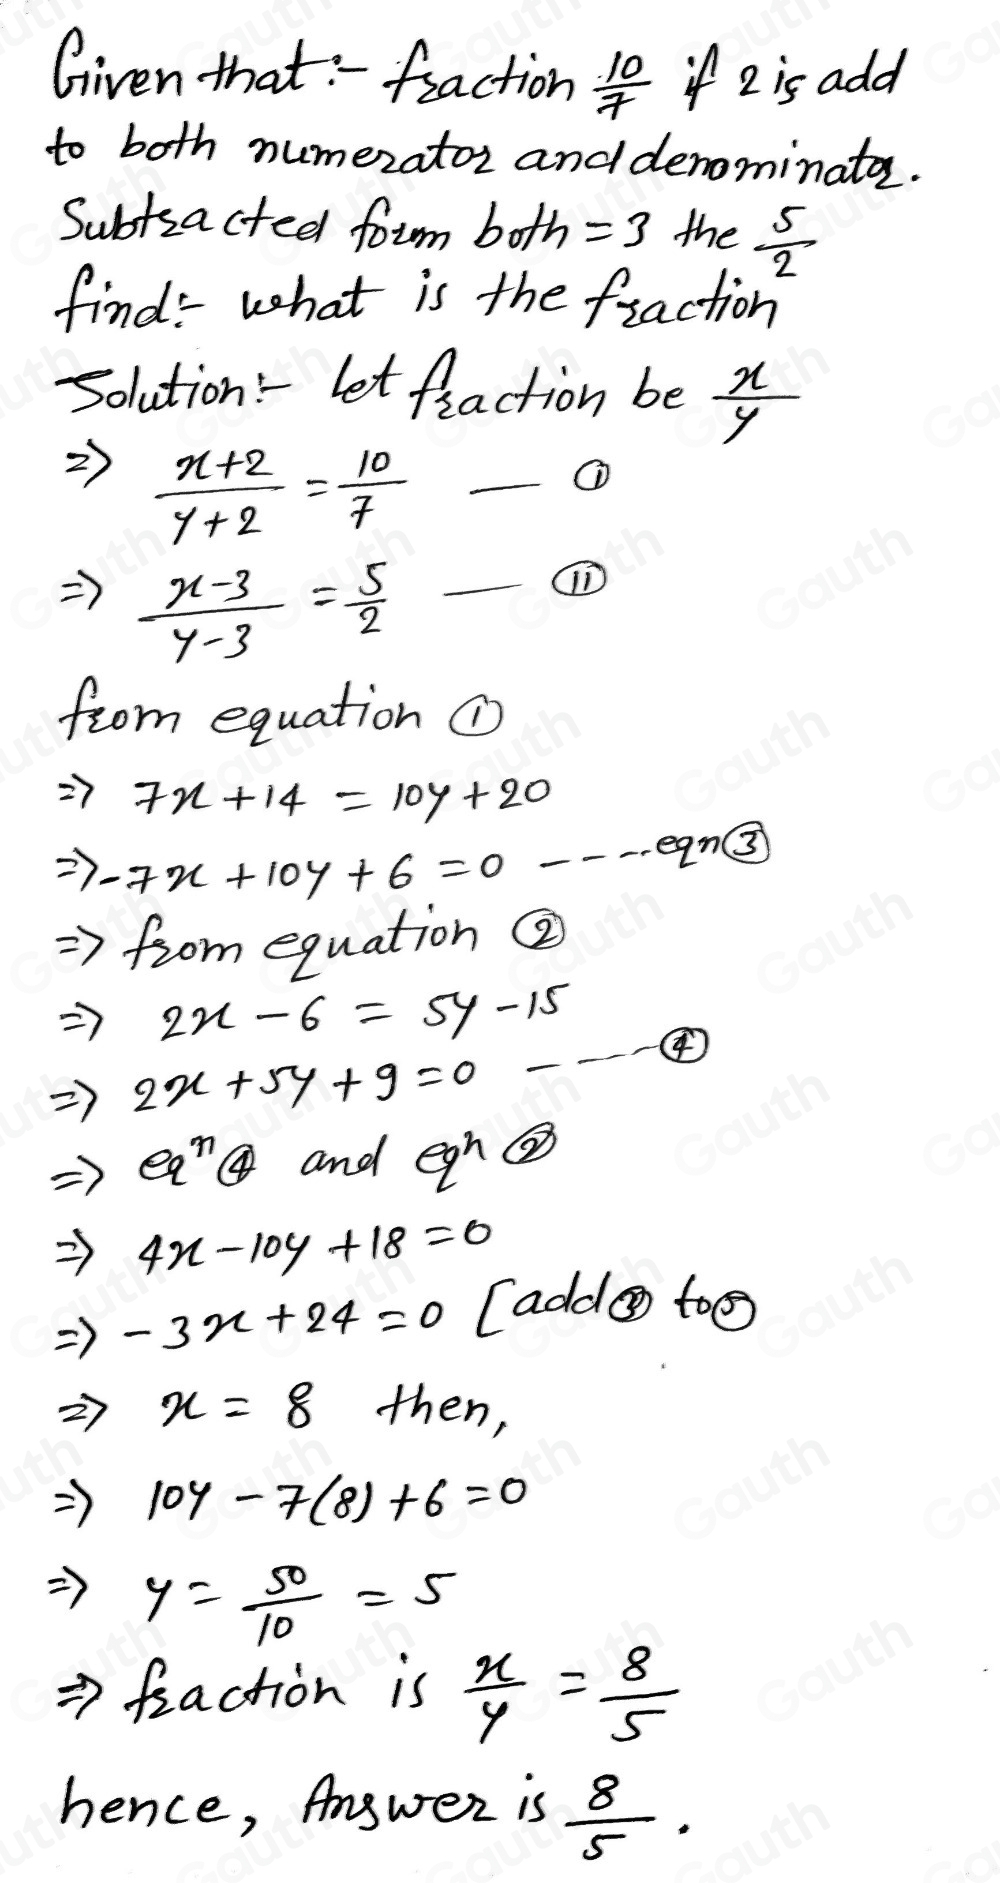 Given that:- fraction 10/7 if 2 is add
to both numerator and denominator.
Subtracted form both = 3 the 5/2
find:- what is the fraction
Solution:- let fraction be x/y
=> (x+2)/(y+2) = 10/7 — ①
=> (x-3)/(y-3) = 5/2 — ⑪
from equation ①
=> 7x+14 = 10y+20
=> -7x+10y+6=0 ---- eqn③
=> from equation ②
=> 2x-6 = 5y-15
=> 2x+5y+9=0 ---- ④
=> eqⁿ④ and eqn②
=> 4x-10y+18=0
=> -3x+24=0 [add③ to⑤
=> x=8 then,
=> 10y-7(8)+6=0
=> y=50/10=5
=> fraction is x/y = 8/5
hence, Answer is 8/5.
Gauth